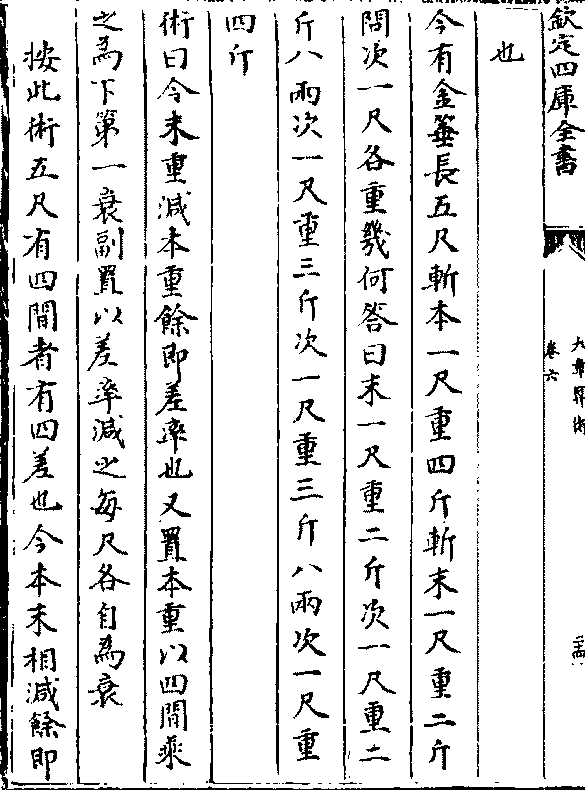 欽定四庫全書
九章算術
卷六
也
今有金箠長五尺斬本一尺重四斤斬末一尺重二斤
問次一尺各重幾何答曰末一尺重二斤次一尺重二
斤八兩次一尺重三斤次一尺重三斤八兩次一尺重
四斤
術曰令末重減本重餘即差率也又置本重以四間乘
之為下第一衰副置以差率減之每尺各自為衰
按此術五尺有四間者有四差也今本末相減餘即